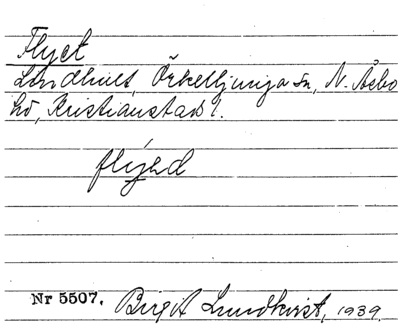 Flyet
Lindhult, Örkelljunga sn, N. Åsbo
hd, Kristianstads l.
flýəd
Nr 5507. Birgit Lundkvist, 1939.